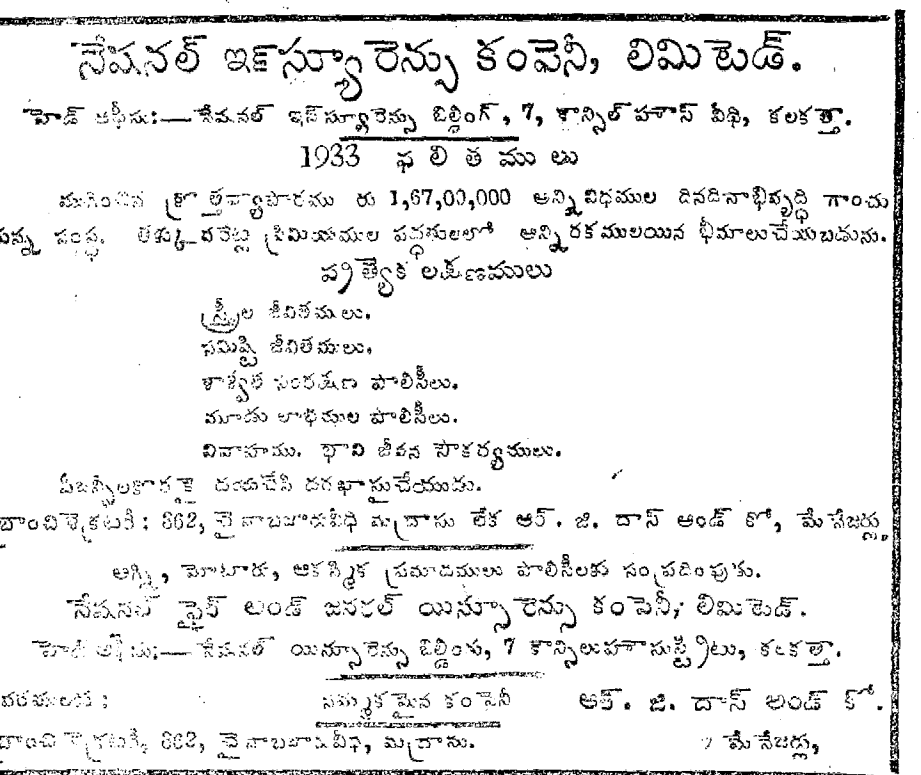 నేషనల్ ఇన్‌స్యూరెన్సు కంపెనీ, లిమిటెడ్.
హెడ్ ఆఫీసు:— నేషనల్ ఇన్‌స్యూరెన్సు బిల్డింగ్, 7, కాన్సిల్ హౌస్ వీధి, కలకత్తా.
1933 ఫలితములు
ముగించిన క్రొత్తవ్యాపారము రు 1,67,00,000 అన్నివిధముల దినదినాభివృద్ధి గాంచు
చున్న సంస్థ. తక్కువరేట్ల ప్రీమియముల పద్ధతులలో అన్నిరకములయిన భీమాలుచేయబడును.
ప్రత్యేక లక్షణములు
స్త్రీల జీవితములు.
సమిష్టి జీవితములు.
శాశ్వత సంరక్షణ పాలిసీలు.
మూడు లాభముల పాలిసీలు.
వివాహము. భావి జీవన సౌకర్యములు.
ఏజన్సీలకొరకై దయచేసి దరఖాస్తుచేయుడు.
బ్రాంచి సెక్రటరీ: 362, చైనాబజారువీధి మద్రాసు లేక ఆర్. జి. దాస్ అండ్ కో, మేనేజర్లు,
అగ్ని, మోటారు, ఆకస్మిక ప్రమాదములు పాలిసీలకు సంప్రదింపుడు.
నేషనల్ ఫైర్ అండ్ జనరల్ యిన్సూరెన్సు కంపెనీ, లిమిటెడ్.
హెడ్ ఆఫీసు:— నేషనల్ యిన్సూరెన్సు బిల్డింగు, 7 కాన్సిలుహౌసుస్ట్రీటు, కలకత్తా.
నమ్మకమైన కంపెనీ ఆర్. జి. దాస్ అండ్ కో.
బ్రాంచి సెక్రటరీ, 362, చైనాబజారువీధి, మద్రాసు. మేనేజర్లు,